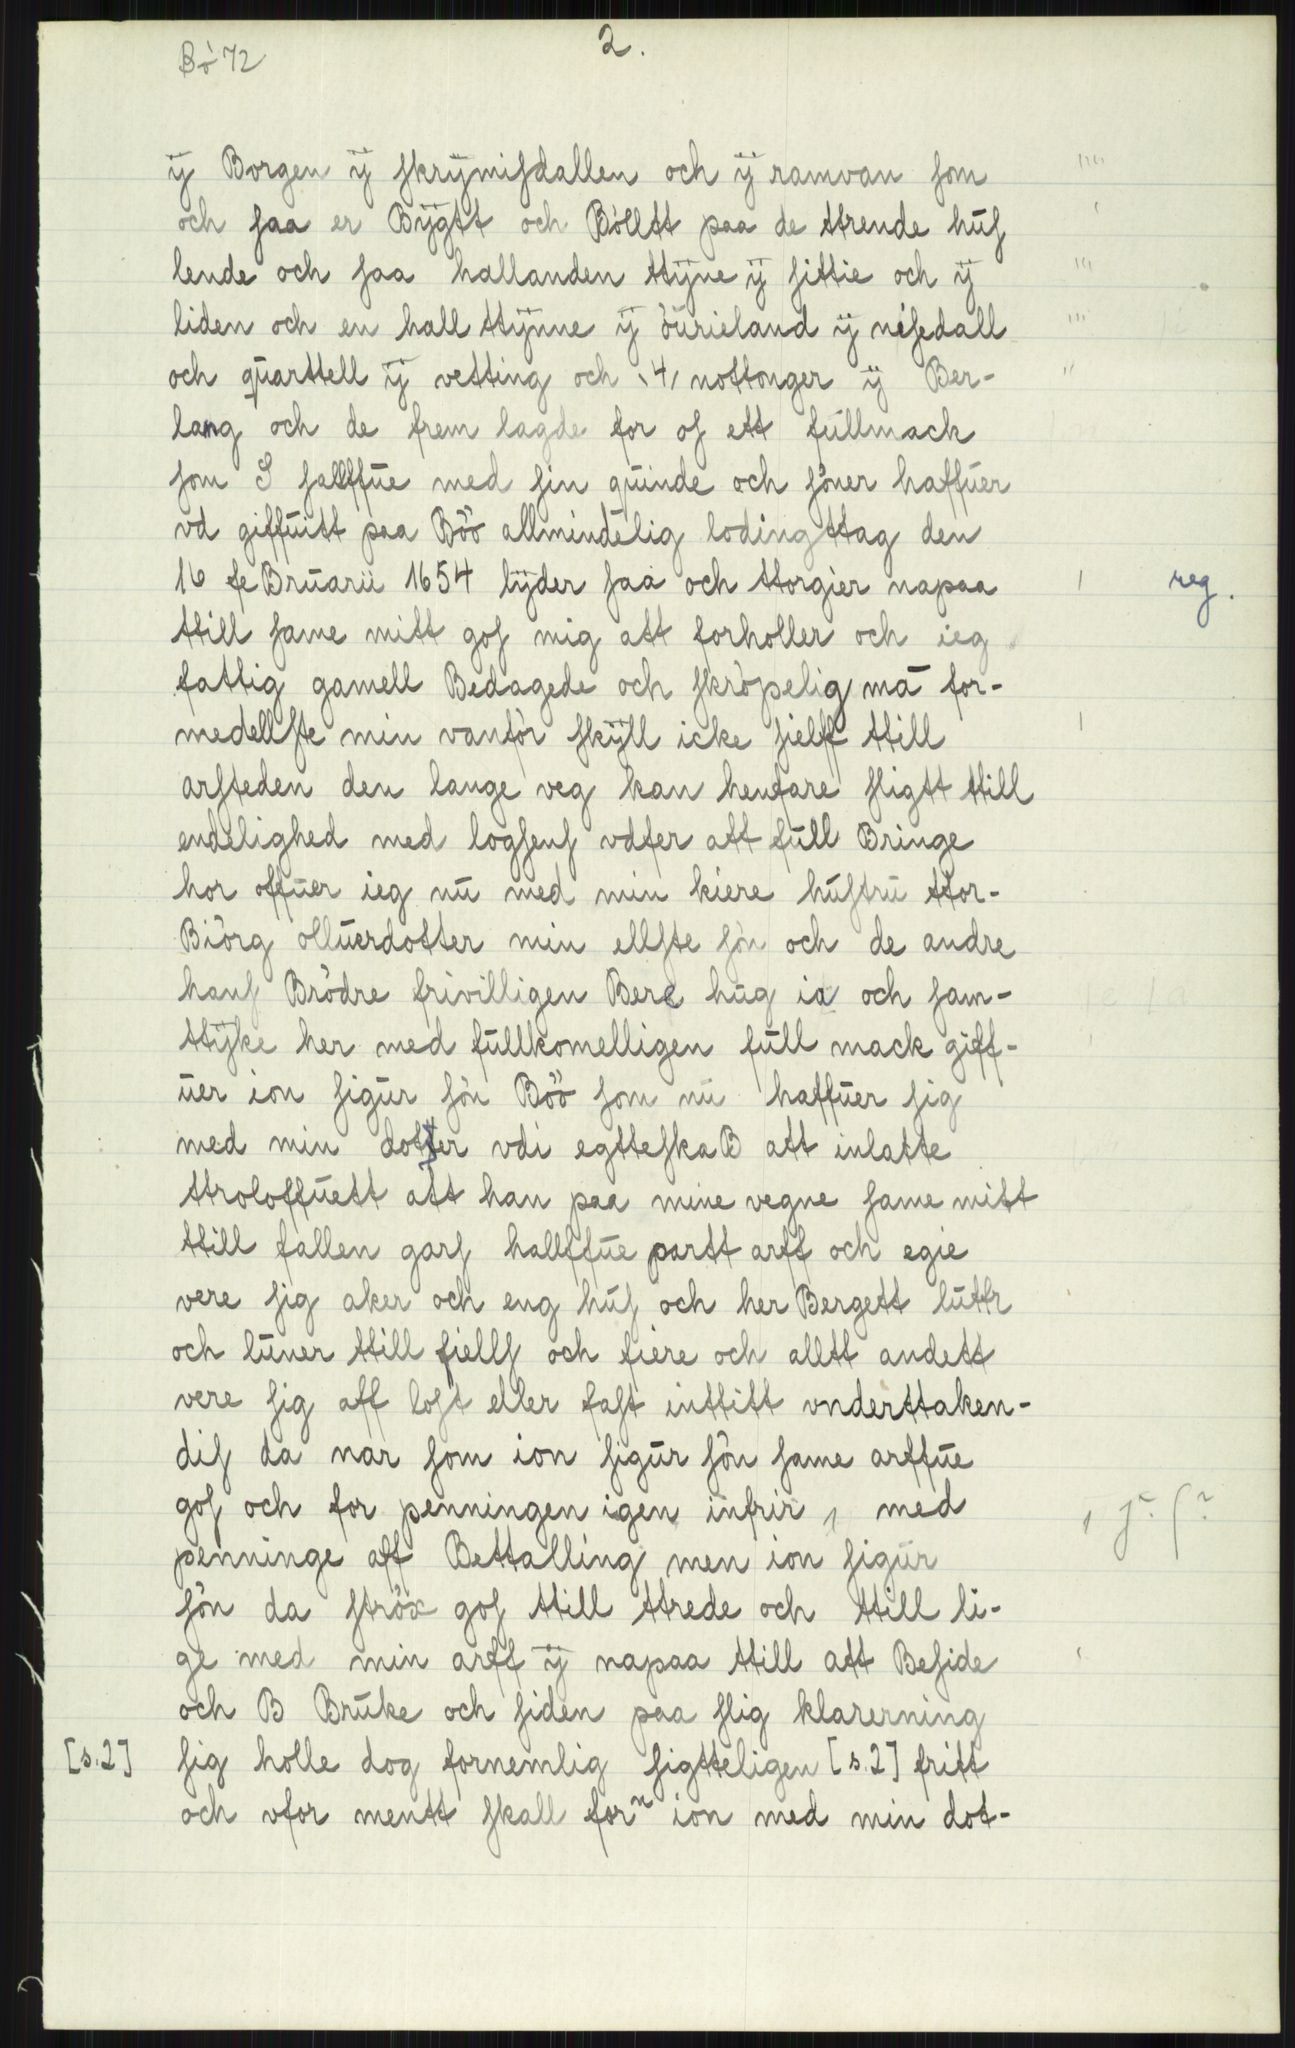 Bò 72
2.
ÿ Borgen ÿ ſkrÿmiſdallen och ÿ ramvan ſom
och ſaa er Bÿgtt och Bólltt paa de ttrende huſ
lende och ſaa hallanden ttÿne ÿ ſittie och ÿ
liden och en hall ttÿnne ÿ öürieland ÿ néſedall
och qüarttell ÿ vetting och ,4, nottonger ÿ Ber-
lang och de frem lagde for oſ ett füllmack
ſom S ſallffüe med ſin qüinde och ſóner haffüer
vd giffüitt paa Böö allmindelig lodingttag den
16 feBrüarii 1654 lÿder ſaa och ttorgier napaa
ttill ſame mitt goſ mig att forholler och ieg
fattig gamell Bedagede och ſkròpelig mä for-
medellſte min vanför ſkÿll icke ſielff ttill
arſteden den lange veg kan henfare ſligtt ttill
endelighed med logſenſ vdfer att füll Bringe
hor offüer ieg nü med min kiere hüſtrü ttor-
Biörg ollüerdotter min ellſte ſön och de andre
hanſ Brödre frivilligen Bere hüg ia och ſam-
ttÿke her med füllkomelligen füll mack giff-
üer ion ſigür ſön Böö ſom nü haffüer ſig
med min dotter vdi egtteſkaB att inlatte
ttroloffüett att han paa mine vegne ſame mitt
ttill fallen garſ hallffüe partt arff och egie
vere ſig aker och eng hüſ och her Bergett lüttr
och lüner ttill fiellſ och fiere och alltt andett
vere ſig aff loſt eller faſt inttitt vnderttaken-
diſ da nar ſom ion ſigür ſön ſame arffüe
goſ och for penningen igen infrir , med
penninge aff Bettalling men ion ſigür
ſön da ſtröx goſ ttill ttrede och ttill li-
ge med min arff ÿ napaa ttill att Beſide
och B Brüke och ſiden paa ſlig klarerning
[s.2] ſig holle dog fornemlig ſigtteligen [s.2] fritt
och vfor mentt ſkall forⁿ ion med min dot-
reg.